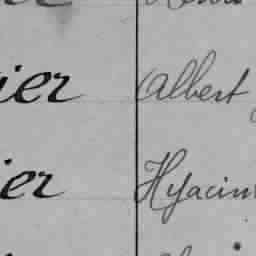 ier Albert
ier Hyacin